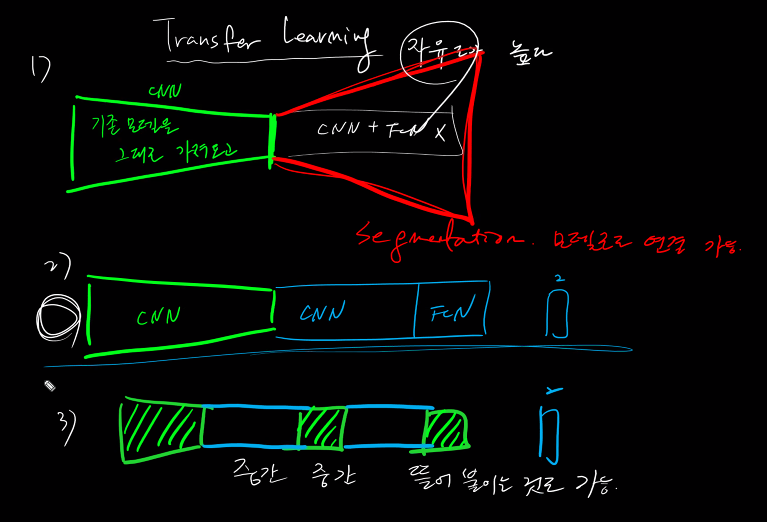 Transfer Learning
자유도가 높다
1)
CNN
기존 모델을
그대로 가져오고
CNN + FCN X
Segmentation. 모델로도 연결 가능.
2)
CNN
CNN
FCN
2
3)
2
중간 중간 뜯어 붙이는 것도 가능.